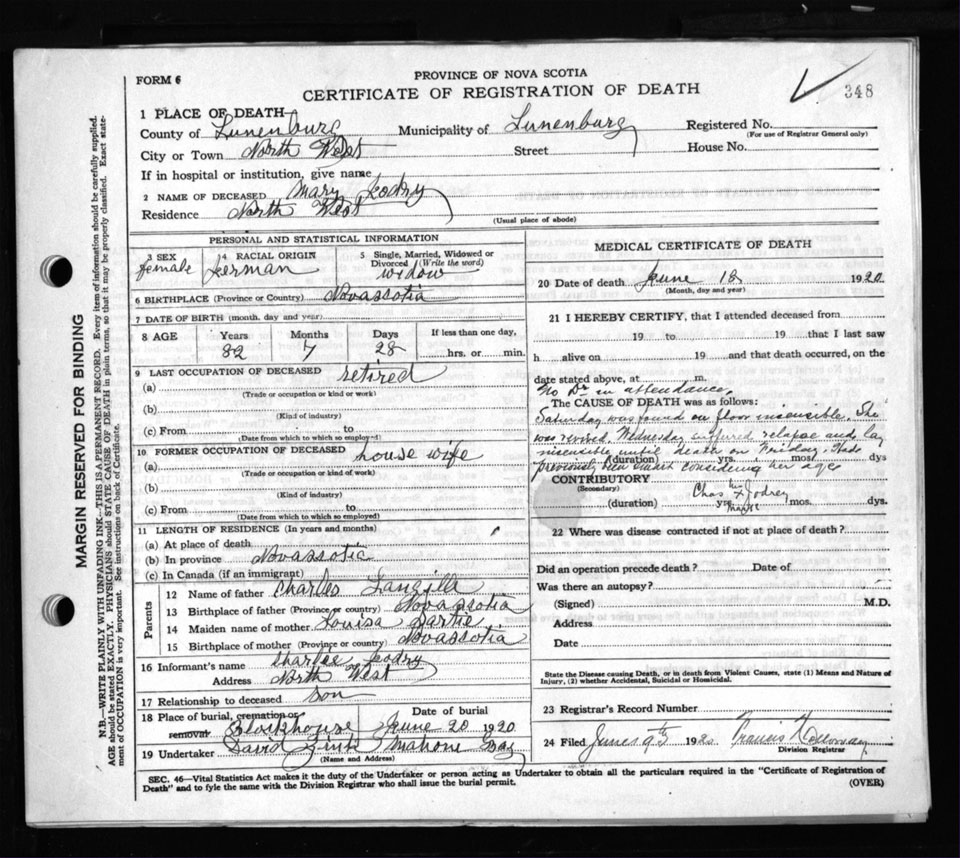 FORM 6
PROVINCE OF NOVA SCOTIA
CERTIFICATE OF REGISTRATION OF DEATH
348
1 PLACE OF DEATH—
County of Lunenburg Municipality of Lunenburg Registered No.
(For use of Registrar General only)
City or Town North West Street House No.
If in hospital or institution, give name
2 NAME OF DECEASED Mary Jodry
Residence North West
(Usual place of abode)
PERSONAL AND STATISTICAL INFORMATION
3 SEX 4 RACIAL ORIGIN 5 Single, Married, Widowed or Divorced (Write the word)
female German widow
6 BIRTHPLACE (Province or Country) Novascotia
7 DATE OF BIRTH (month, day and year)
8 AGE Years Months Days If less than one day,
82 7 28 hrs. or min.
9 LAST OCCUPATION OF DECEASED retired
(a)
(Trade or occupation or kind or work)
(b)
(Kind of industry)
(c) From
(Date from which to which so employed)
10 FORMER OCCUPATION OF DECEASED house wife
(a)
(Trade or occupation or kind of work)
(b)
(Kind of Industry)
(c) From
(Date from which to which so employed)
11 LENGTH OF RESIDENCE (In years and months)
(a) At place of death
(b) In province Novassotia
(c) In Canada (if an immigrant)
Parents
12 Name of father Charles Langille
13 Birthplace of father (Province or country) Novassotia
14 Maiden name of mother Louisa
15 Birthplace of mother (Province or country) Novassotia
16 Informant's name Charlee Jodry
Address North West
17 Relationship to deceased son
18 Place of burial, cremation or removal Date of burial
Blockhouse June 20 1920
19 Undertaker David Zink Mahone Bay
(Name and Address)
MEDICAL CERTIFICATE OF DEATH
20 Date of death June 18 1920
(Month, day and year)
21 I HEREBY CERTIFY, that I attended deceased from
19 to 19 that I last saw
h alive on 19 and that death occurred, on the
date stated above, at m.
No Dr in attendance
The CAUSE OF DEATH was as follows:
Saturday was found on floor insensible. She
was revived. Wednesday suffered relapse and lay
insensible until death on Friday. Had
(duration) yrs. mos. dys
previously been smart considering her age
CONTRIBUTORY
(Secondary)
Chas his X mark Jodrey
(duration) yrs. mos. dys.
22 Where was disease contracted if not at place of death?
Did an operation precede death? Date of
Was there an autopsy?
(Signed) M.D.
Address
Date
State the Disease causing Death, or in death from Violent Causes, state (1) Means and Nature of
Injury, (2) whether Accidental, Suicidal or Homicidal.
23 Registrar's Record Number
24 Filed June 1920 Francis
Division Registrar
SEC. 46—Vital Statistics Act makes it the duty of the Undertaker or person acting as Undertaker to obtain all the particulars required in the "Certificate of Registration of
Death" and to fyle the same with the Division Registrar who shall issue the burial permit.
(OVER)
MARGIN RESERVED FOR BINDING
N.B.—WRITE PLAINLY WITH UNFADING INK—THIS IS A PERMANENT RECORD. Every item of information should be carefully supplied.
AGE should be stated EXACTLY. PHYSICIANS should STATE CAUSE OF DEATH in plain terms, so that it may be properly classified. Exact state-
ment of OCCUPATION is very important. See instructions on back of Certificate.